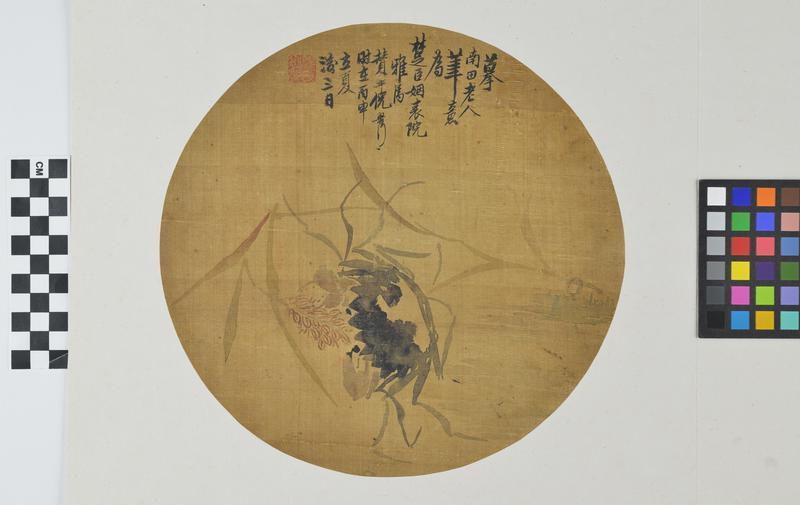 摹
南田老人
筆意
為
楚臣姻表院
雅屬
贊平倪
時在丙申
立夏
後三日
CM